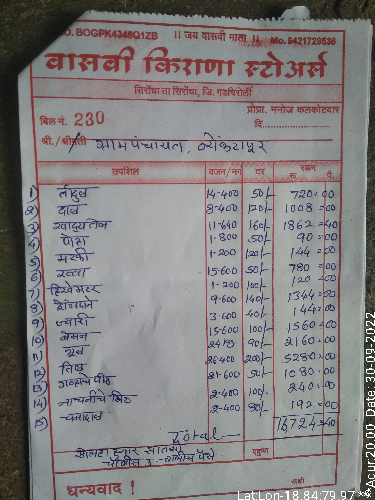 NO. BOGPK4346Q1ZB ॥ जय वासवी माता ॥ Mo. 9421729536
वासवी किराणा स्टोअर्स
सिरोंचा ता सिरोंचा, जि. गडचिरोली
प्रोप्रा. मनोज कालकोटवार
बिल नं. 230 दि.
श्री./श्रीमती ग्रामपंचायत, व्येंकटापूर
तपशिल वजन/नग दर रक्कम
रु. पै.
1) तांदूळ 14-400 50/- 720=00
2) दाळ 8-400 120/- 1008=00
3) खाद्यतेल 11-640 160/- 1862=40
4) पोहा 1-800 50/- 90=00
5) मटकी 1-200 120/- 144=00
6) रव्वा 15-600 50/- 780=00
7) 1-200 100/- 120=00
8) शेंगदाणे 9-600 140/- 1344=00
9) ज्वारी 3-600 40/- 144=00
10) बेसन 15-600 100/- 1560=00
11) गुळ 90/- 2160=00
12) तिळ 26-400 200/- 5280=00
13) गव्हाचे पीठ 21-600 50/- 1080=00
14) नाचनीचे पिठ 2-400 100/- 240=00
15) चनादाळ 2-400 80/- 192=00
Total 16724=40
सोळा हजार सातशे
चोवीस रु. चाळीस पैसे
एकुण
धन्यवाद !
Lat Lon-18.84:79.97
Asur 20.00 Date: 30-09-2022